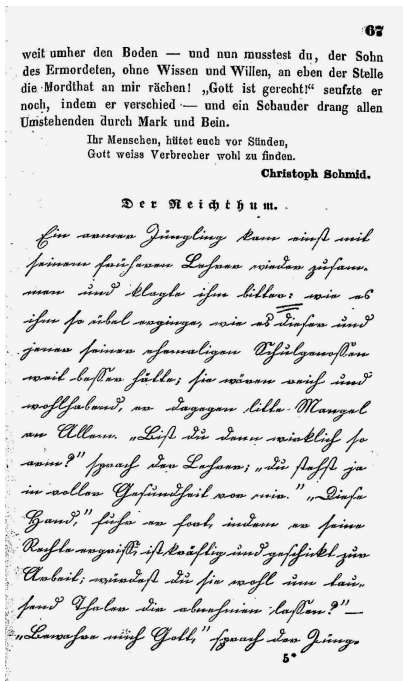 67
weit umher den Boden — und nun musstest du, der Sohn
des Ermordeten, ohne Wissen und Willen, an eben der Stelle
die Mordthat an mir rächen! „Gott ist gerecht!“ seufzte er
noch, indem er verschied — und ein Schauder drang allen
Umstehenden durch Mark und Bein.
Ihr Menschen, hütet euch vor Sünden,
Gott weiss Verbrecher wohl zu finden.
Christoph Schmid.
Der Reichthum.
Ein armer Jüngling kam einst mit
seinem früheren Lehrer wieder zusam-
men und klagte ihm bitter: wie es
ihm so übel erginge, wie es dieser und
jener seiner ehemaligen Schulgenossen
weit besser hätte; sie wären reich und
wohlhabend, er dagegen litte Mangel
an Allem. „Bist du denn wirklich so
arm?“ sprach der Lehrer; „du stehst ja
in voller Gesundheit vor mir.“ „Diese
Hand,“ fuhr er fort, indem er seine
Rechte ergriff, ist kräftig und geschickt zur
Arbeit; würdest du sie wohl um tau-
send Thaler dir abnehmen lassen?“ —
„Bewahre mich Gott,“ sprach der Jüng-
5*